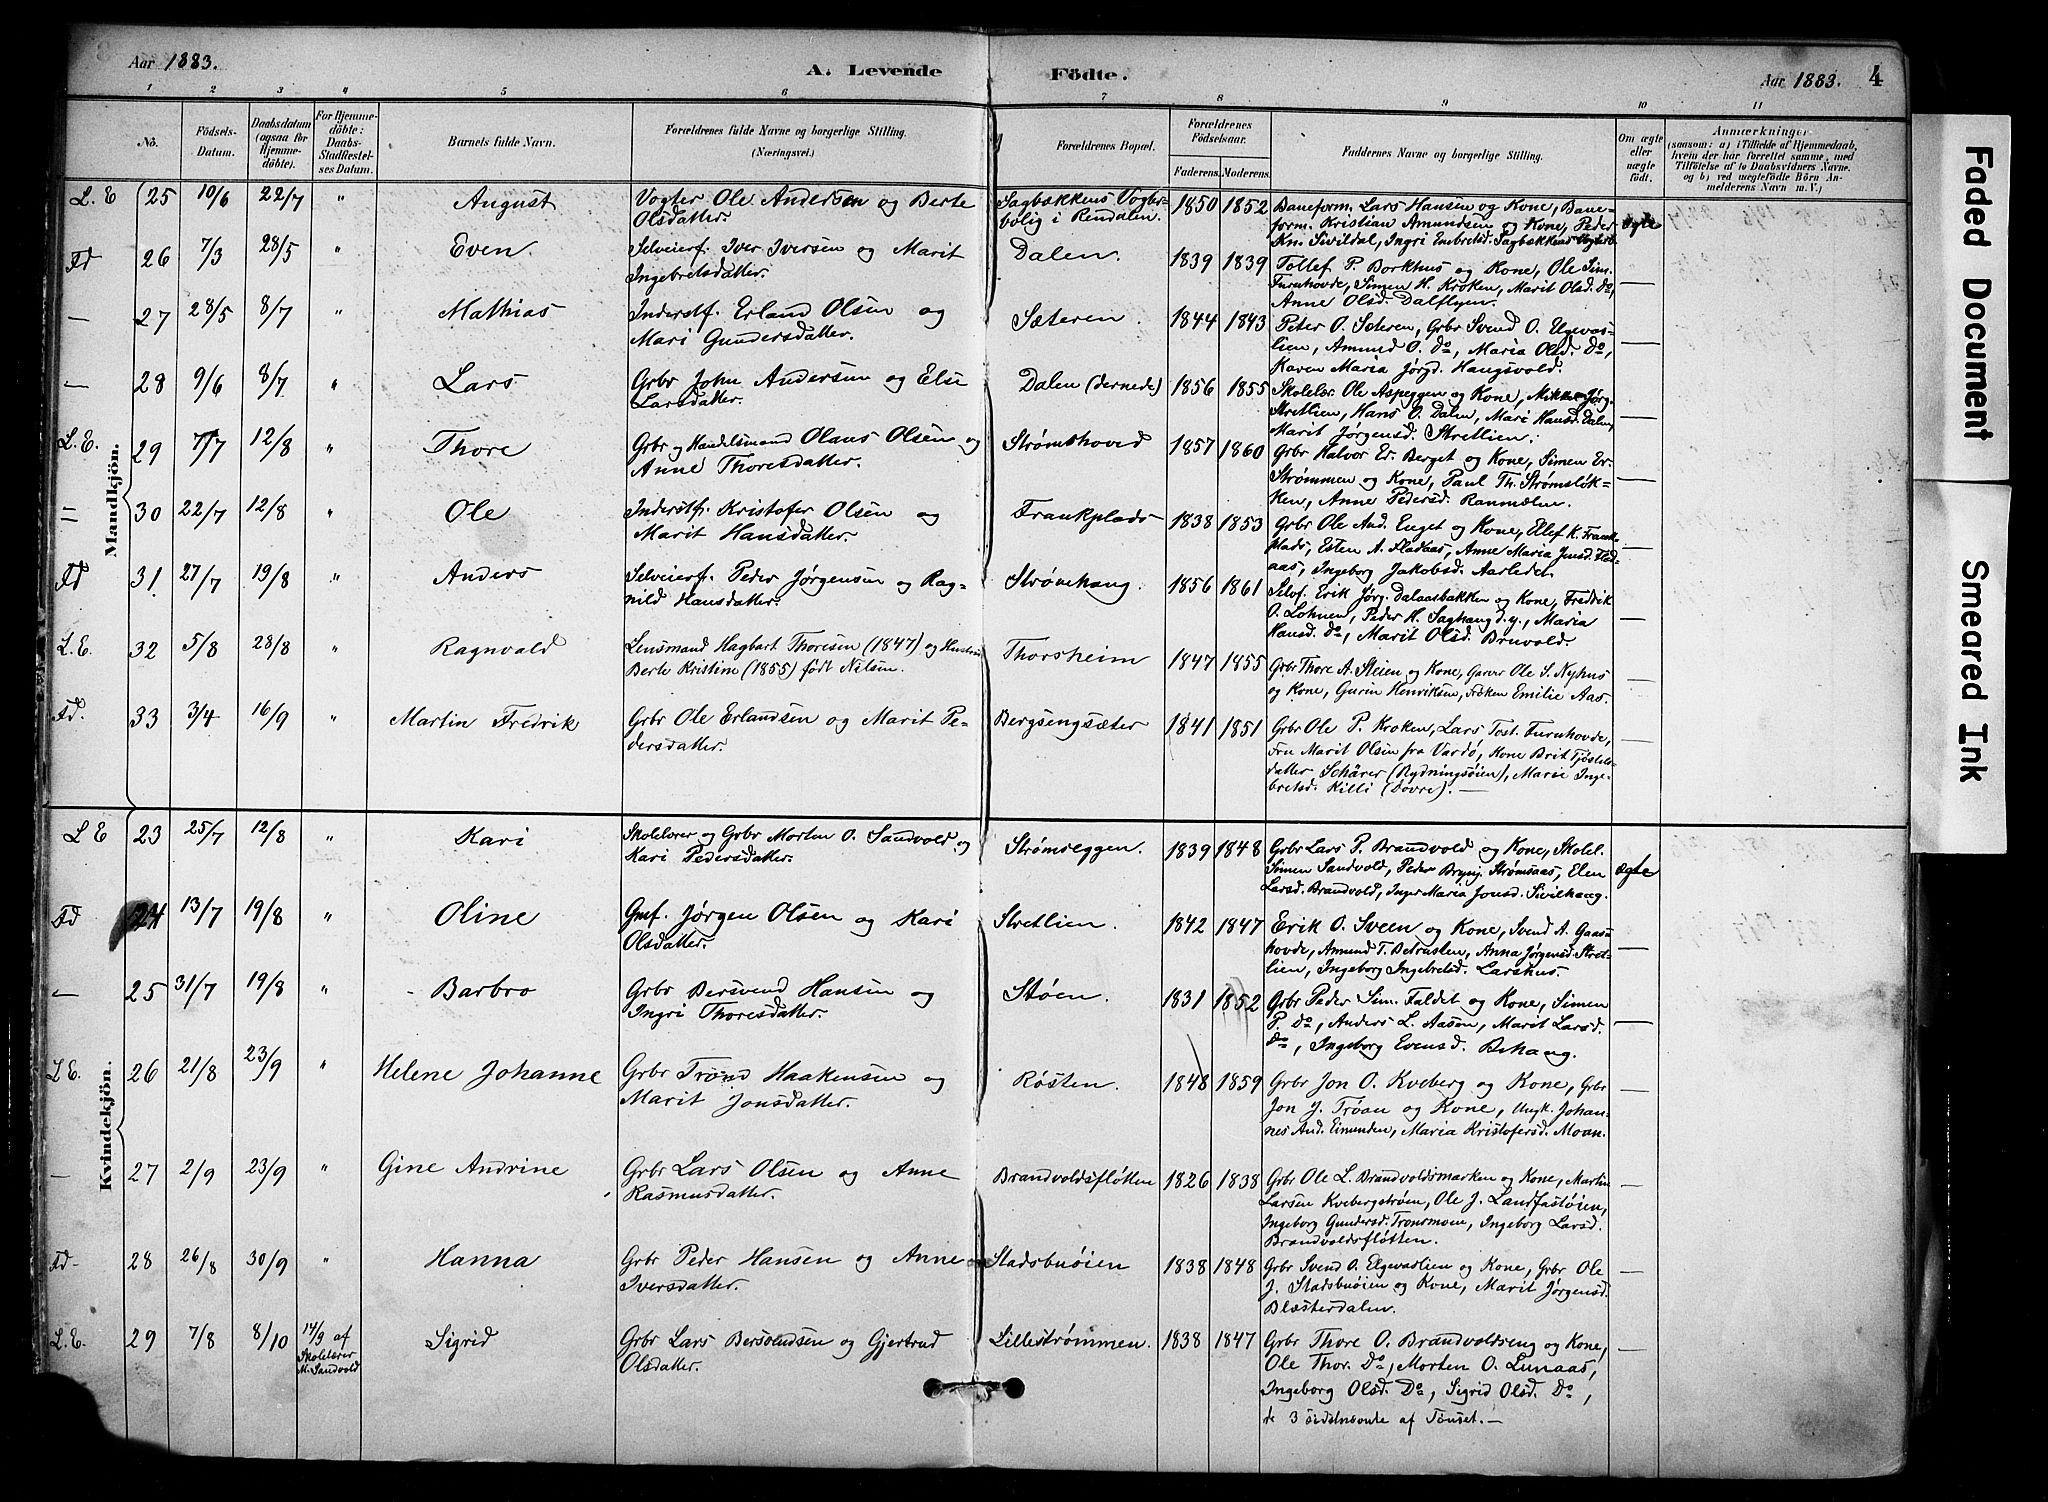 Aar 1883.
A. Levende Födte.
Aar 1883. 4
1 2 3 4 5 6 7 8 9 10 11
No.
Födsels-
Datum.
Daabsdatum
(ogsaa for
Hjemme-
döbte).
For Hjemme-
döbte:
Daabs-
Stadfæstel-
ses Datum.
Barnets fulde Navn.
Forældrenes fulde Navne og borgerlige Stilling.
(Næringsvei.)
Forældrenes Bopæl.
Forældrenes
Födselsaar.
Faderens. Moderens.
Faddernes Navne og borgerlige Stilling.
Om ægte
eller
uægte
födt.
Anmærkninger
(saasom: a) i Tilfælde af Hjemmedaab,
hvem der har forrettet samme, med
Tilföielse af to Daabsvidners Navne.
og b) ved uægtefödte Börn An-
melderens Navn m. V.)
Mandkjön.
L. E 25 10/6 22/7 " August
Vogter Ole Andersen og Berte
Olsdatter.
Sagbakkens Vogter-
bolig i Rendalen.
1850 1852
Baneform. Lars Hansen og Kone, Bane-
form. Kristian Amundsen og Kone, Peder
Kn. Sivildal, Ingri Embretsd. Sagbakkens Vogterb.
ægte
Fd 26 7/3 28/5 " Even
Selveierf. Iver Iversen og Marit
Ingebretsdatter.
Dalen.
1839 1839
Tollef P. Borkhus og Kone, Ole Sim.
Furuhovde, Simen H. Kroken, Marit Olsd. Do,
Anne Olsd. Dalflyen.
—
— 27 28/5 8/7 " Mathias
Inderstf. Erland Olsen og
Mari Gundersdatter.
Sæteren.
1844 1843
Peter O. Sæteren, Grbr Svend O. Elgevas-
lien, Amund O. Do, Maria Olsd. Do,
Karen Maria Jørgd. Haugsvold.
—
— 28 9/6 8/7 " Lars
Grbr John Andersen og Else
Larsdatter.
Dalen (dernede)
1856 1855
Skolelær. Ole Aspeggen og Kone, Mikkel Jørg.
Stretlien, Hans O. Dalen, Mari Hansd. Dalen,
Marit Jørgensd. Stretlien.
—
L. E. 29 7/7 12/8 " Thore
Grbr og Handelsmand Olaus Olsen og
Anne Thoresdatter.
Strømshoved
1857 1860
Grbr Halvor Er. Berget og Kone, Simen Er.
Strømmen og Kone, Paul Th. Strømsløk-
ken, Anne Pedersd. Ranmælen.
—
= 30 22/7 12/8 " Ole
Inderstf. Kristofer Olsen og
Marit Hansdatter.
Frankplads
1838 1853
Grbr Ole And. Enget og Kone, Elef K. Frank-
plads, Esten A. Fladaas, Anne Maria Jonsd. Flad-
aas, Ingeborg Jakobsd. Aarledet.
—
Fd 31. 27/7 19/8 " Anders
Selveierf. Peder Jørgensen og Rag-
nild Hansdatter.
Strømhaug.
1856 1861
Selvf. Erik Jørg. Dalaasbakken og Kone, Fredrik
O. Lohnen, Peder H. Saghaug d. y., Maria
Hansd. Do, Marit Olsd. Bruvold.
—
L. E. 32 5/8 28/8 " Ragnvald
Lensmand Hagbart Thoresen (1847) og Hustru
Berte Kristine (1855) født Nilsen.
Thorsheim
1847 1855
Grbr Thore A. Steien og Kone, Garver Ole S. Nyhus
og Kone, Gurin Henriksen, Frøken Emilie Aas.
—
Fd. 33 3/4 16/9 " Martin Fredrik
Grbr Ole Erlandsen og Marit Pe-
dersdatter.
Bergsengsæter
1841 1851
Grbr Ole P. Kroken, Lars Tost. Furuhovde,
Fru Marit Olsen fra Vardø, Kone Brit Tjøstels-
datter Schärer (Rydningsøien), Marie Inge-
bretsd. Killi (Dovre). —
—
Kvindekjön.
L E 23 25/7 12/8 " Kari
Skolelærer og Grbr Morten O. Sandvold og
Kari Pedersdatter.
Strømseggen.
1839 1848
Grbr Lars P. Brandvold og Kone, Skolel.
Simen Sandvold, Peder Brynj. Strømsaas, Elen
Larsd. Brandvold, Inger Maria Jonsd. Sivilhaug.
ægte
Fd 24 13/7 19/8 " Oline
Gmf. Jørgen Olsen og Kari
Olsdatter.
Stretlien.
1842 1847
Erik O. Sveen og Kone, Svend A. Gaas-
hovde, Amund T. Betrasten, Anna Jørgensd. Stret-
lien, Ingeborg Ingebretsd. Larshus.
—
— 25 31/7 19/8 " Barbro
Grbr Bersvend Hansen og
Ingri Thoresdatter.
Støen.
1831 1852
Grbr Peder Sim. Faldet og Kone, Simen
P. Do, Anders L. Aasen, Marit Larsd.
Do, Ingeborg Evensd. Behaug.
—
L E. 26 21/8 23/9 " Helene Johanne
Grbr Trond Haakensen og
Marit Jonsdatter.
Røsten.
1848 1859
Grbr Jon O. Kveberg og Kone, Grbr
Jon J. Trøan og Kone, Ungk. Johan-
nes And. Eimunden, Maria Kristofersd. Moan.
—
— 27 2/9 23/9 " Gine Andrine
Grbr Lars Olsen og Anne
Rasmusdatter.
Brandvoldsfløtten
1826 1838
Grbr Ole L. Brandvoldsmarken og Kone, Martin
Larsen Kvebergstrøen, Ole J. Landfastøien,
Ingeborg Gundersd. Tronsmoen, Ingeborg Larsd.
Brandvoldsfløtten.
—
Fd- 28 26/8 30/9 " Hanna
Grbr Peder Hansen og Anne
Iversdatter.
Stadsbuøien
1838 1848
Grbr Svend O. Elgevaslien og Kone, Grbr Ole
J. Stadsbuøien og Kone, Marit Jørgensd.
Blæsterdalen.
—
L. E. 29 7/8 8/10 14/9 af
Skolelærer
M. Sandvold
Sigrid
Grbr Lars Bersvendsen og Gjertrud
Olsdatter.
Lillestrømmen.
1838 1847
Grbr Thore O. Brandvoldseng og Kone,
Ole Thor. Do, Morten O. Lunaas,
Ingeborg Olsd. Do, Sigrid Olsd. Do,
de 3 sidstnævnte af Tønset. —
—
Faded Document
Smeared Ink